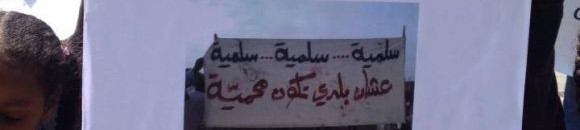 سلمية .... سلمية ... سلمية
عشان بلدي تكون محميّة